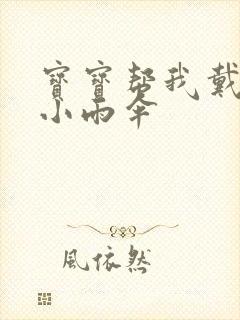 寶寶帮我戴
小雨伞
風依然